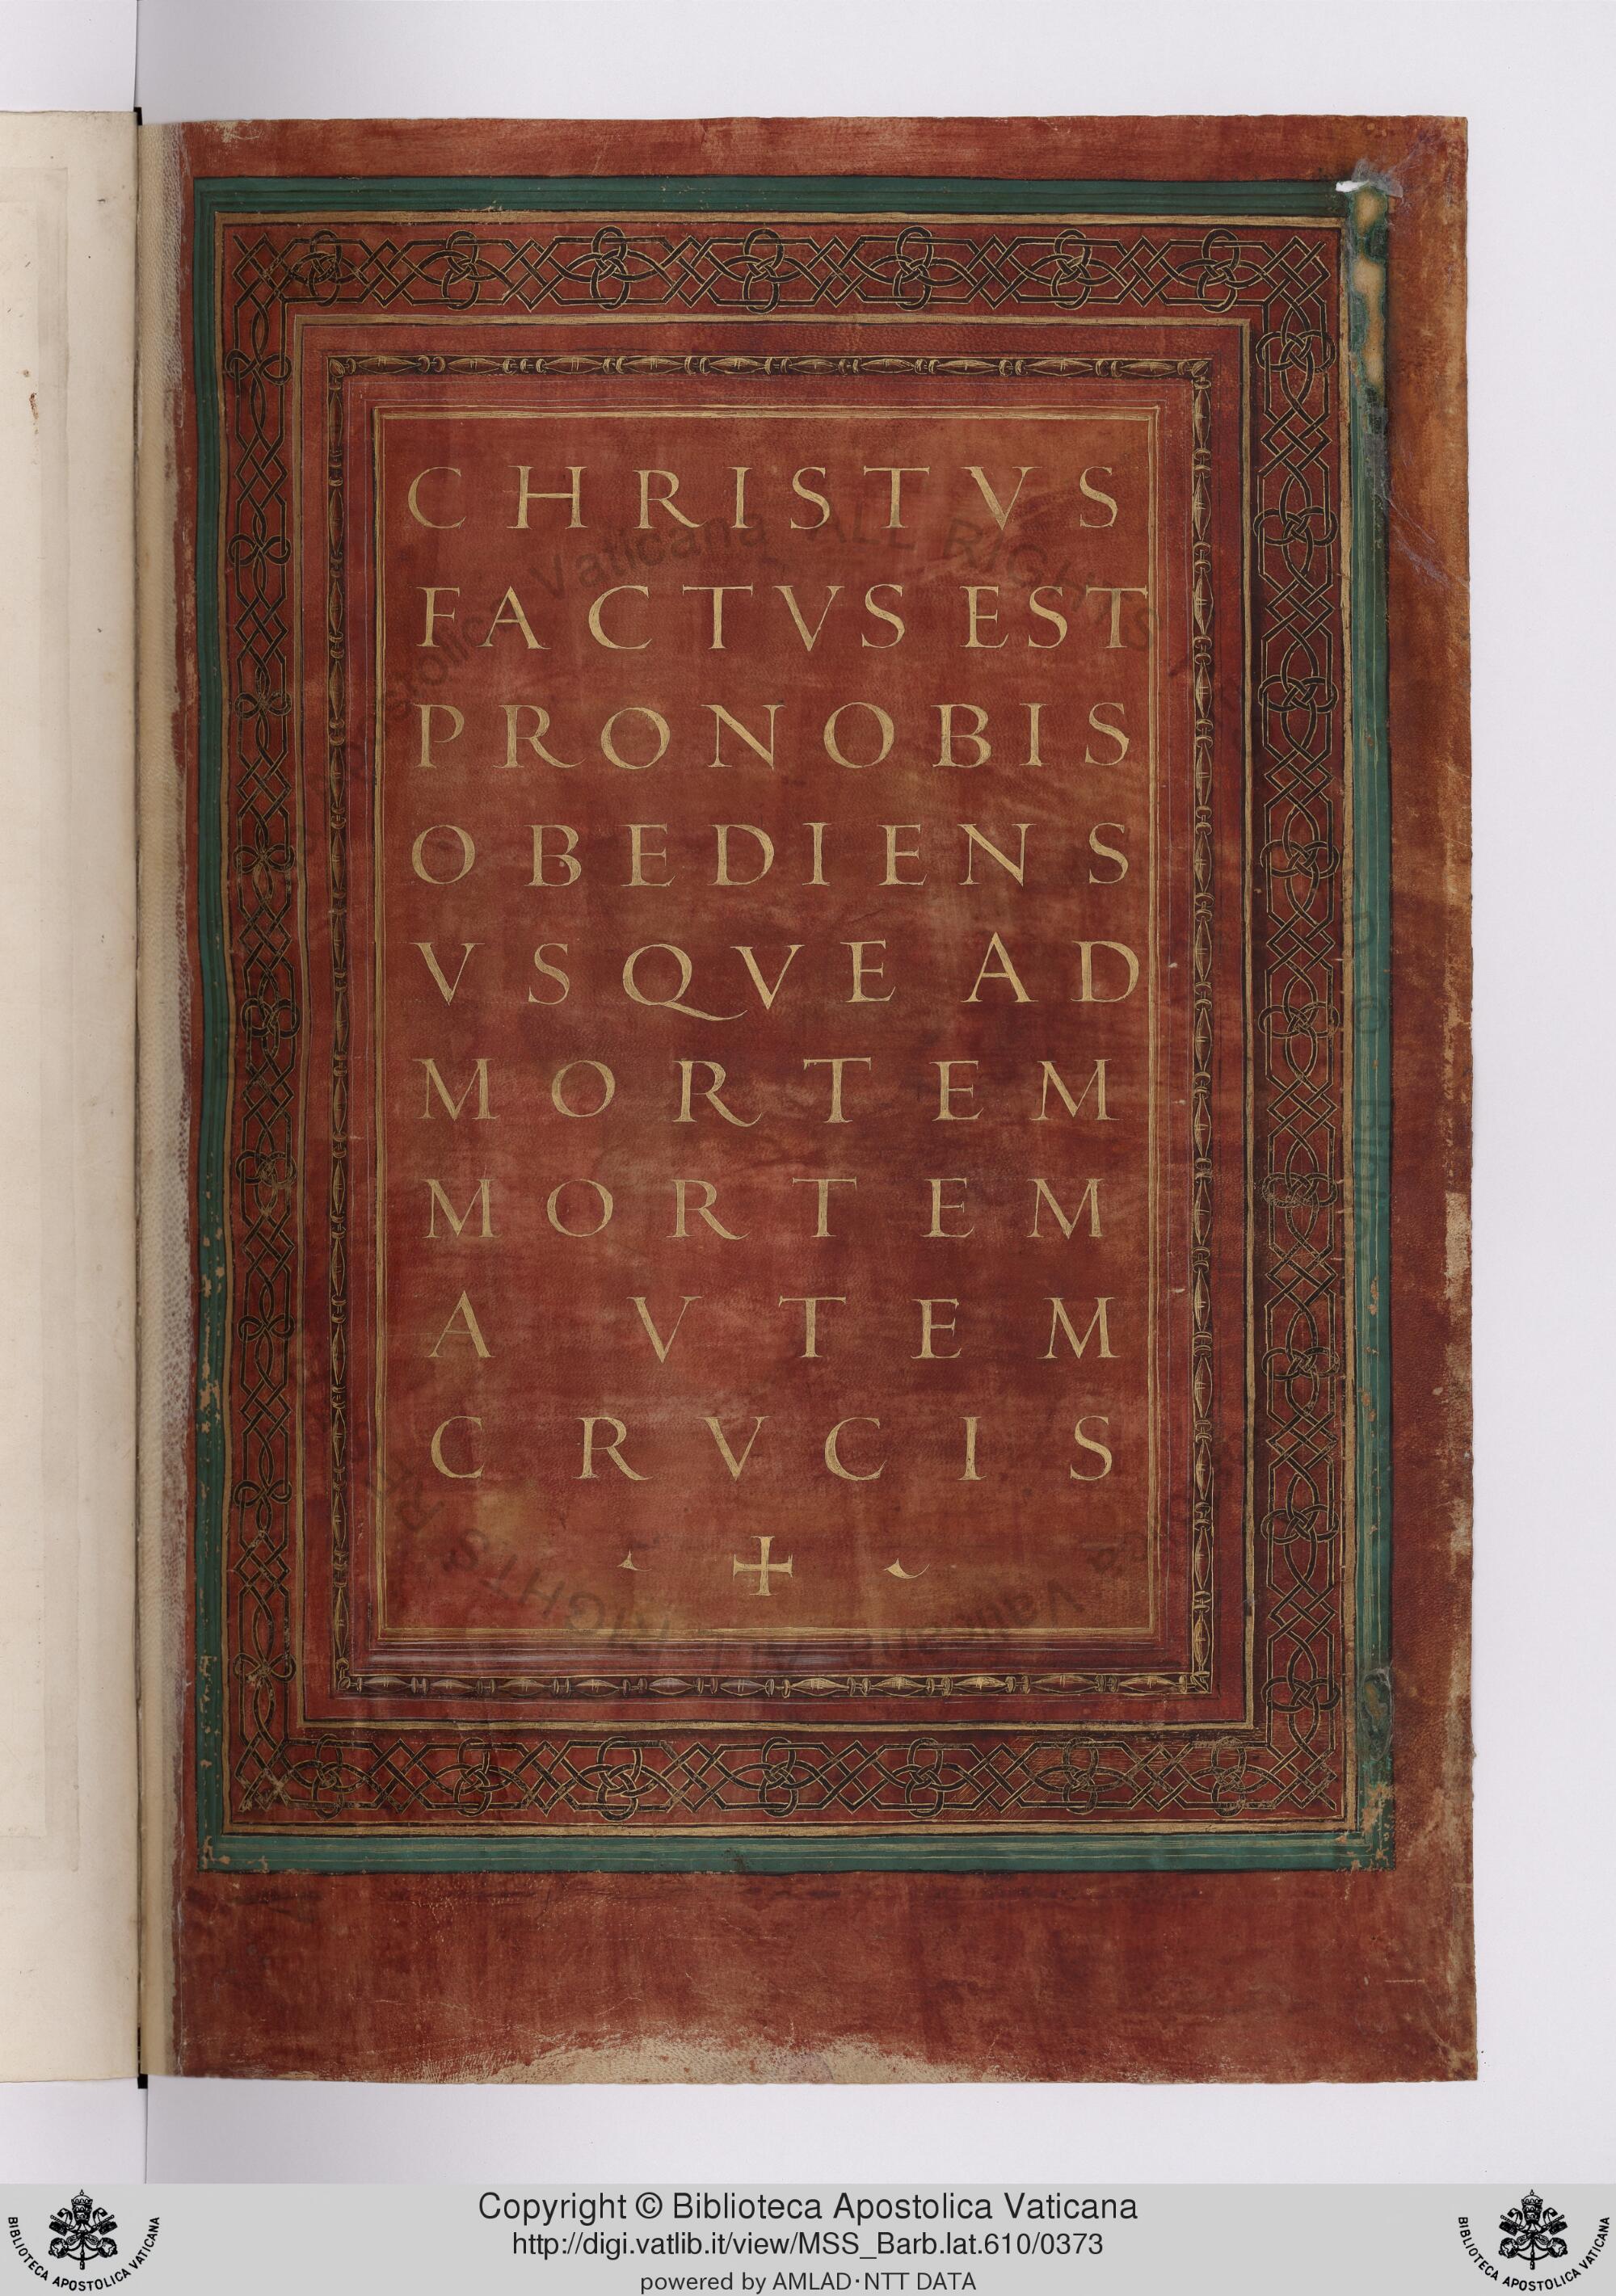 CHRISTVS
FACTVS EST
PRO NOBIS
OBEDIENS
VSQVE AD
MORTEM
MORTEM
AVTEM
CRVCIS
Copyright © Biblioteca Apostolica Vaticana
http://digi.vatlib.it/view/MSS_Barb.lat.610/0373
powered by AMLAD·NTT DATA
BIBLIOTECA APOSTOLICA VATICANA
BIBLIOTECA APOSTOLICA VATICANA